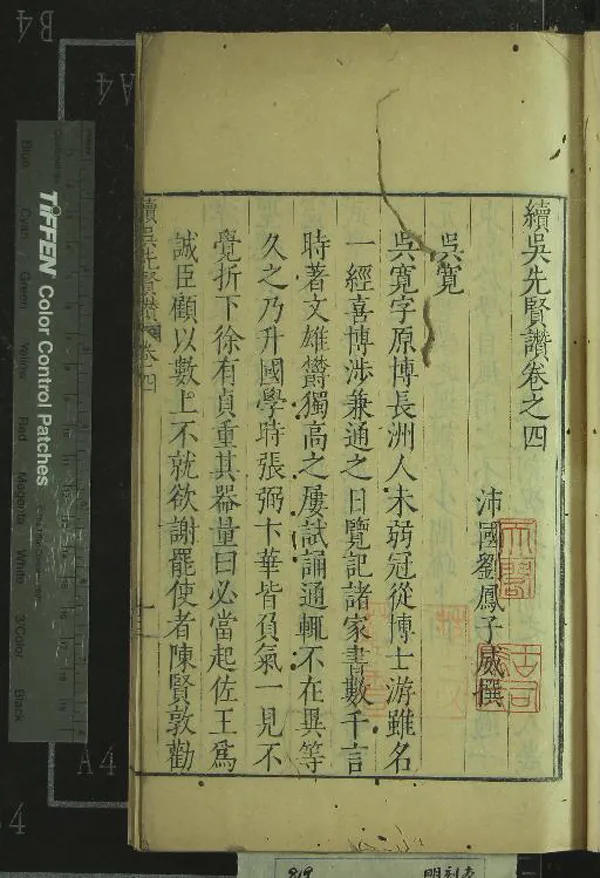 續吳先賢讚卷之四
沛國劉鳳子威撰
吳寬
吳寬字原博長洲人未弱冠從博士游雖名
一經喜博涉兼通之日覽記諸家書數千言
時著文雄欝獨高之屢試誦通輒不在異等
久之乃升國學時張弼卞華皆負氣一見不
覺折下徐有貞重其器量曰必當起佐王爲
誠臣顧以數上不就欲謝罷使者陳賢敦勸
續吳先賢讚 卷之四
TIFFEN Color Control Patches
Blue
Cyan
Green
Yellow
Red
Magenta
White
3/Color
Black
B4
A4
A4